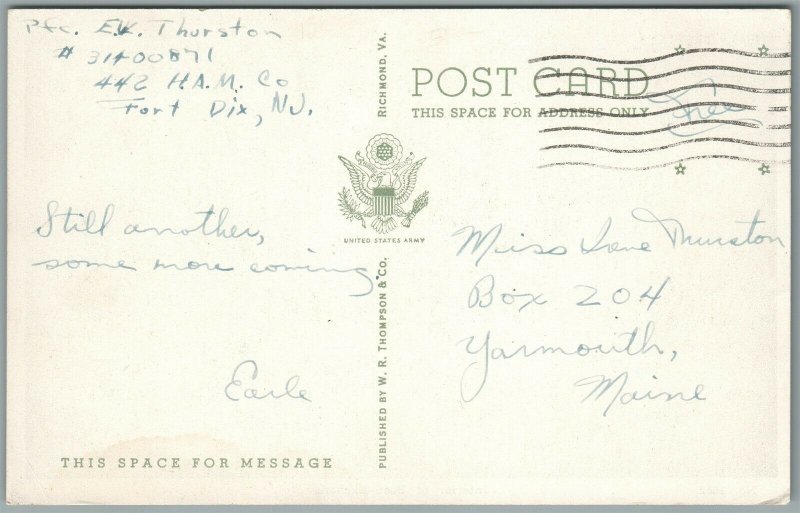 Pfc. E.W. Thurston
# 31400871
442 H.A.M. Co
Fort Dix, N.J.
Still another,
some more coming.
Earle
THIS SPACE FOR MESSAGE
PUBLISHED BY W. R. THOMPSON & CO. RICHMOND, VA.
UNITED STATES ARMY
POST CARD
THIS SPACE FOR ADDRESS ONLY
Free
Miss Irene Thurston
Box 204
Yarmouth,
Maine